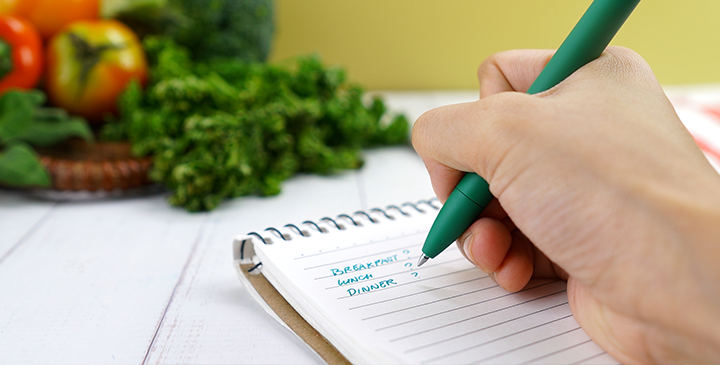 BREAKFAST ?
LUNCH ?
DINNER ?